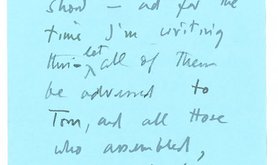 show — ad for the
time I'm writing
this — let all of them
be advessed to
Tom, and all those
who assembled,